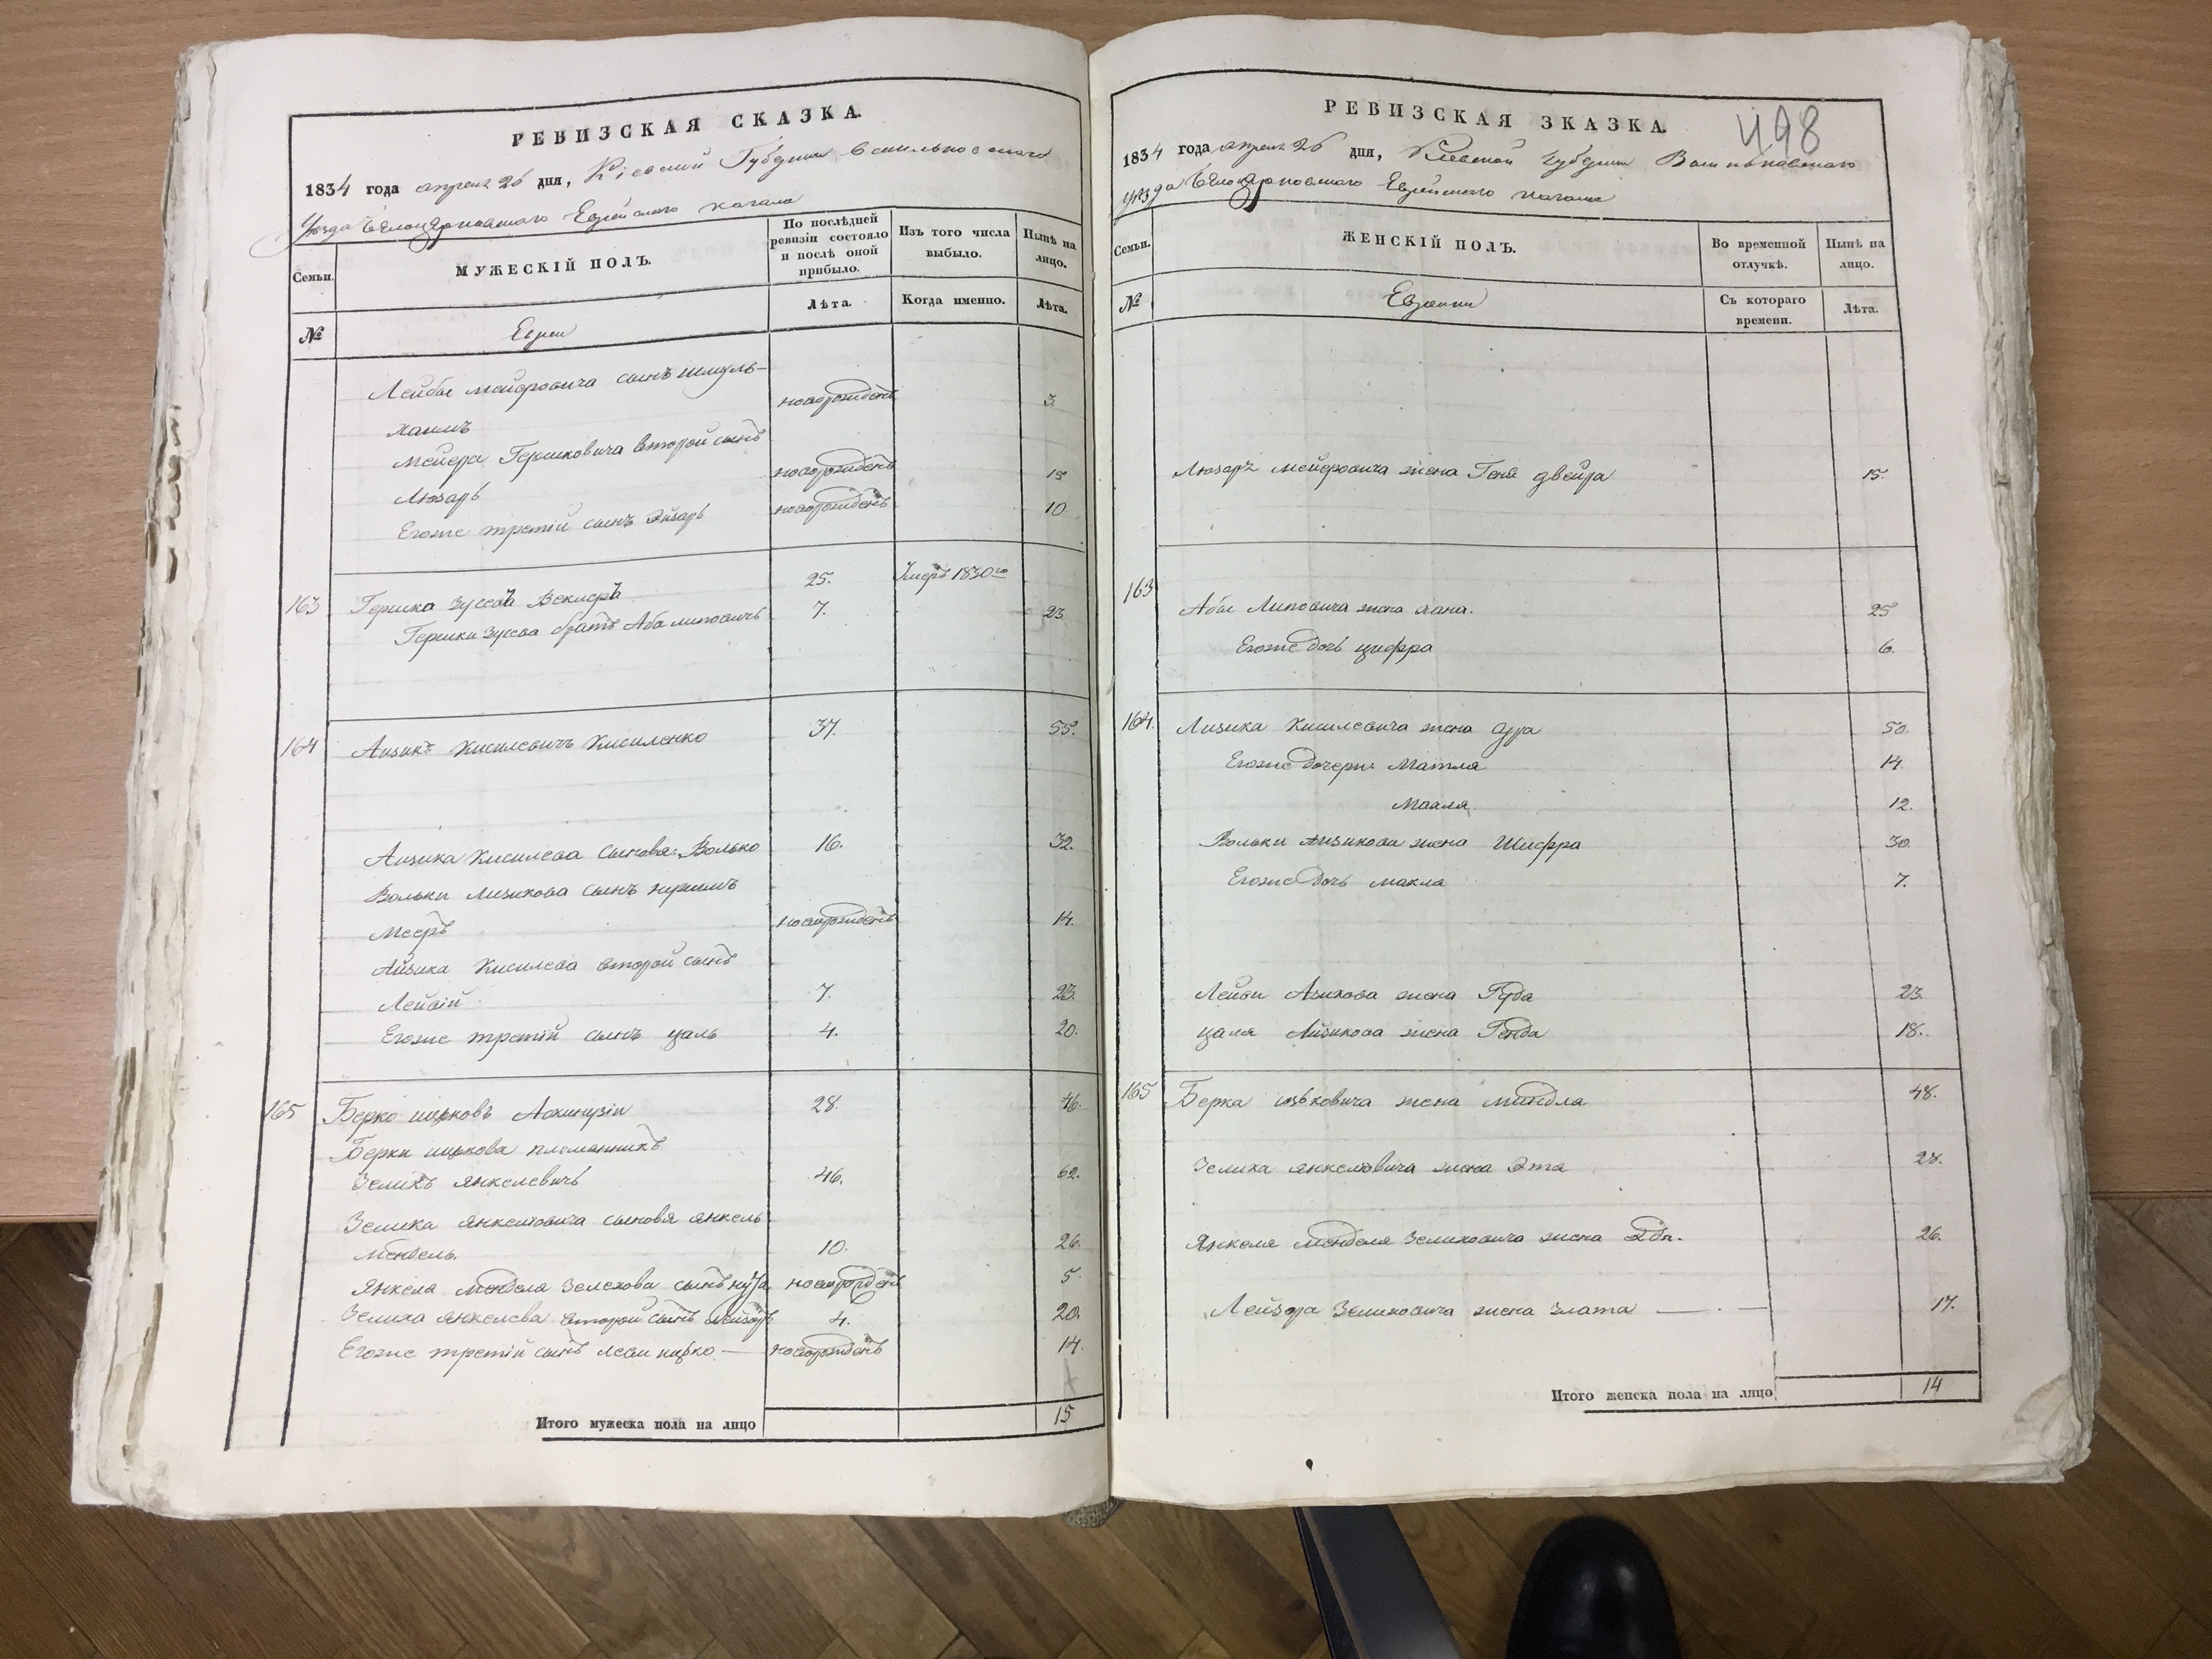 РЕВИЗСКАЯ СКАЗКА.
1834 года апреля 26 дня, Кіевской Губерніи Васильковскаго
Уезда Белоцерковскаго Еврейскаго кагала
Семьи.
МУЖЕСКІЙ ПОЛЪ.
По послѣдней ревизіи состояло и послѣ оной прибыло.
Изъ того числа выбыло.
Нынѣ на лицо.
№
Евреи
Лѣта.
Когда именно.
Лѣта.
Лейбы Мейеровича сынъ Шмуль-
Хаимъ новорожденъ 3.
Мейера Гершковича второй сынъ
Люзаръ новорожденъ 15
Егоже третій сынъ новорожденъ 10
163 Гершко Зусевъ Векслеръ 25. Умеръ 1830го
Гершки Зусева братъ Аба Липовичъ 7. 23.
164 Аизикъ Кисилевичъ Кисиленко 37. 55.
Аизика Кисилева сыновья: Волько 16. 32.
Вольки Аизикова сынъ
Мееръ новорожденъ 14.
Айзика Кисилева второй сынъ
Лейвій 7. 23.
Егоже третій сынъ Цаль 4. 20.
165 Берко Ицковъ 28. 46.
Берки Ицкова племянникъ
Зеликъ Янкелевичъ 46. 62.
Зелика Янкелювича сыновья Янкель
Мендель 10. 26.
Янкеля Менделя Зелехова сынъ Нута новорожденъ 5.
Зелиха Янкелева второй сынъ Лейзоръ 4. 20.
Егоже третій сынъ новорожденъ 14.
Итого мужеска пола на лицо 15
РЕВИЗСКАЯ ЗКАЗКА.
498
1834 года апреля 26 дня, Кіевской Губерніи Васильковскаго
уезда Белоцерковскаго Еврейскаго кагала
Семьи.
ЖЕНСКІЙ ПОЛЪ.
Во временной отлучкѣ.
Нынѣ на лицо.
№
Еврейки
Съ котораго времени.
Лѣта.
Люзаръ Мейеровича жена Геня Двейра 15.
163 Абы Липовича жена Хана. 25
Егоже дочь Цифра 6.
164. Аизика Кисилевича жена Сура 50.
Егоже дочери Матля 14.
Махля 12.
Вольки Аизикова жена Шифра 30.
Егоже дочь Махла 7.
Лейви Азикова жена Гуда 23.
Цаля Айзикова жена Генда 18.
165 Берка Ицьковича жена Миндла 48.
Зелика Янкеловича жена Эта 28.
Янкеля Менделя Зелиховича жена 26.
Лейзора Зелиховича жена Злата 17.
Итого женска пола на лицо 14